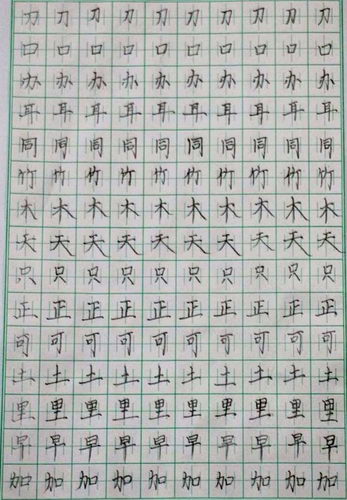 刀刀刀刀刀刀刀刀刀刀
口口口口口口口口口口
办办办办办办办办办办
耳耳耳耳耳耳耳耳耳耳
同同同同同同同同同同
竹竹竹竹竹竹竹竹竹竹
木木木木木木木木木木
天天天天天天天天天天
只只只只只只只只只只
正正正正正正正正正正
可可可可可可可可可可
土土土土土土土土土土
里里里里里里里里里里
早早早早早早早早早早
加加加加加加加加加加